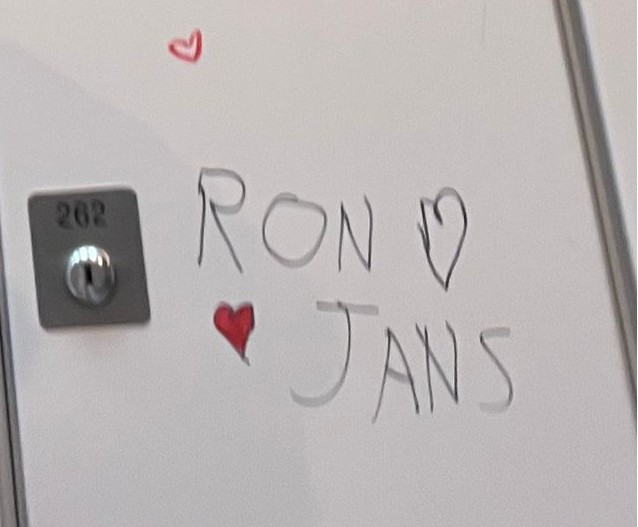 262
RON ♡
♥ JANS